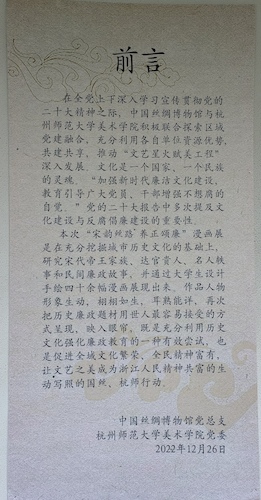 前言
在全党上下深入学习宣传贯彻党的
二十大精神之际，中国丝绸博物馆与杭
州师范大学美术学院积极联合探索区域
党建融合，充分利用各自单位资源优势，
共建共享，推动“文艺星火赋美工程”
深入发展。文化是一个国家、一个民族
的灵魂。“加强新时代廉洁文化建设，
教育引导广大党员、干部增强不想腐的
自觉。”党的二十大报告中多次提及文
化建设与反腐倡廉建设的重要性。
本次“宋韵丝路 养正颂廉”漫画展
是在充分挖掘城市历史文化的基础上，
研究宋代帝王家族、达官贵人、名人轶
事和民间廉政故事，并通过大学生设计
手绘四十余幅漫画展现出来。作品人物
形象生动，栩栩如生，耳熟能详，再次
把历史廉政题材用世人最容易接受的方
式呈现，映入眼帘。既是充分利用历史
文化强化廉政教育的一种有效尝试，也
是促进全域文化繁荣、全民精神富有，
让文艺之美成为浙江人民精神共富的生
动写照的国丝、杭师行动。
中国丝绸博物馆党总支
杭州师范大学美术学院党委
2022年12月26日